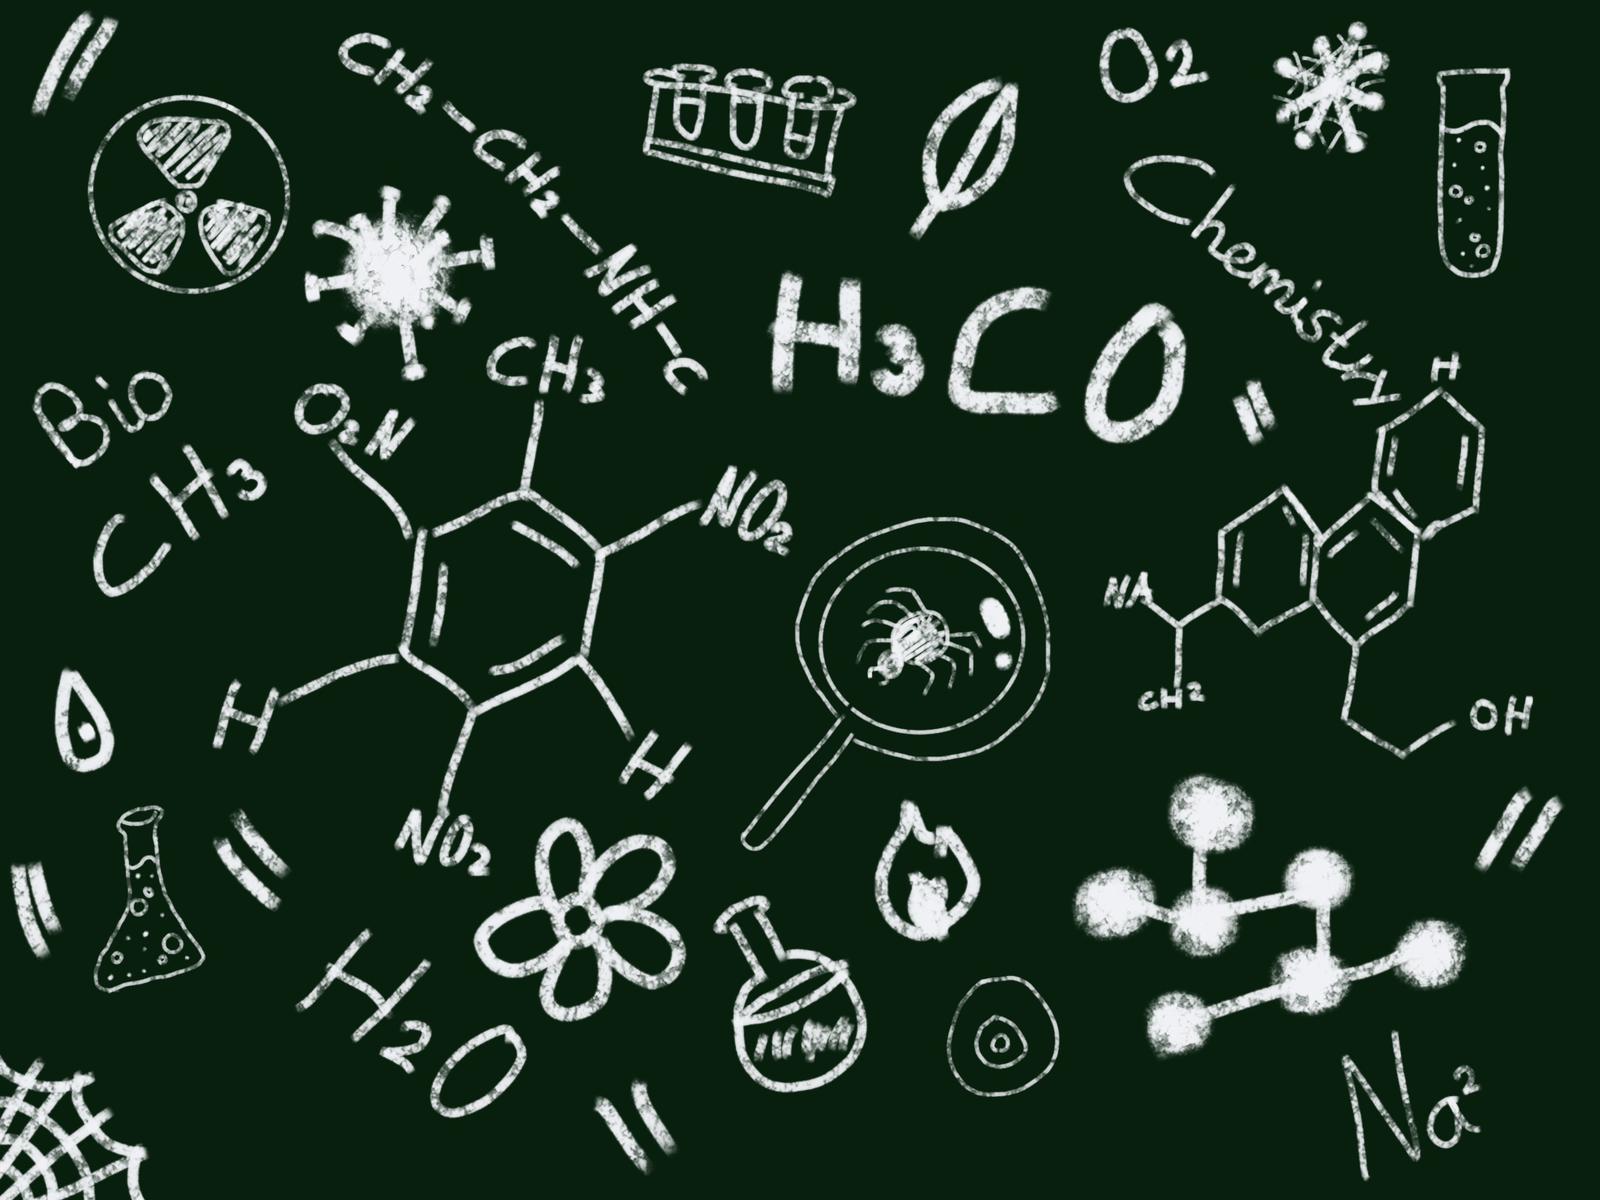 CH2-CH2-NH-C
O2
Chemistry
H3CO
Bio
CH3
O2N
CH3
NO2
H
H
NO2
H
NA
CH2
OH
H2O
Na²